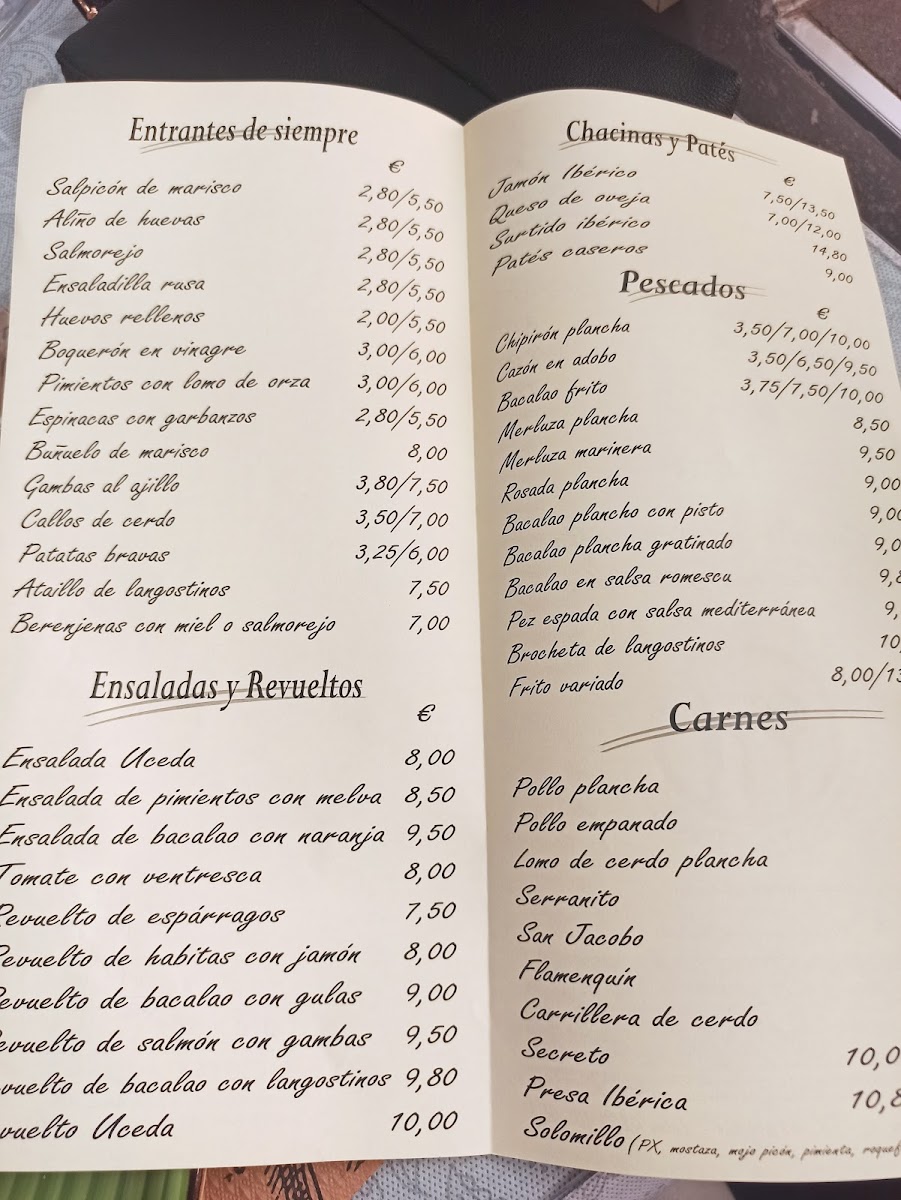 Entrantes de siempre
€
Salpicón de marisco 2,80/5,50
Aliño de huevas 2,80/5,50
Salmorejo 2,80/5,50
Ensaladilla rusa 2,80/5,50
Huevos rellenos 2,00/5,50
Boquerón en vinagre 3,00/6,00
Pimientos con lomo de orza 3,00/6,00
Espinacas con garbanzos 2,80/5,50
Buñuelo de marisco 8,00
Gambas al ajillo 3,80/7,50
Callos de cerdo 3,50/7,00
Patatas bravas 3,25/6,00
Ataillo de langostinos 7,50
Berenjenas con miel o salmorejo 7,00
Ensaladas y Revueltos
€
Ensalada Uceda 8,00
Ensalada de pimientos con melva 8,50
Ensalada de bacalao con naranja 9,50
Tomate con ventresca 8,00
Revuelto de espárragos 7,50
Revuelto de habitas con jamón 8,00
Revuelto de bacalao con gulas 9,00
evuelto de salmón con gambas 9,50
vuelto de bacalao con langostinos 9,80
vuelto Uceda 10,00
Chacinas y Patés
€
Jamón Ibérico 7,50/13,50
Queso de oveja 7,00/12,00
Surtido ibérico 14,80
Patés caseros 9,00
Pescados
€
Chipirón plancha 3,50/7,00/10,00
Cazón en adobo 3,50/6,50/9,50
Bacalao frito 3,75/7,50/10,00
Merluza plancha 8,50
Merluza marinera 9,50
Rosada plancha 9,00
Bacalao plancho con pisto 9,00
Bacalao plancha gratinado 9,0
Bacalao en salsa romescu 9,8
Pez espada con salsa mediterránea 9,
Brocheta de langostinos 10,
Frito variado 8,00/13
Carnes
Pollo plancha
Pollo empanado
Lomo de cerdo plancha
Serranito
San Jacobo
Flamenquín
Carrillera de cerdo
Secreto 10,0
Presa Ibérica 10,8
Solomillo (PX, mostaza, mojo picón, pimienta, roquef